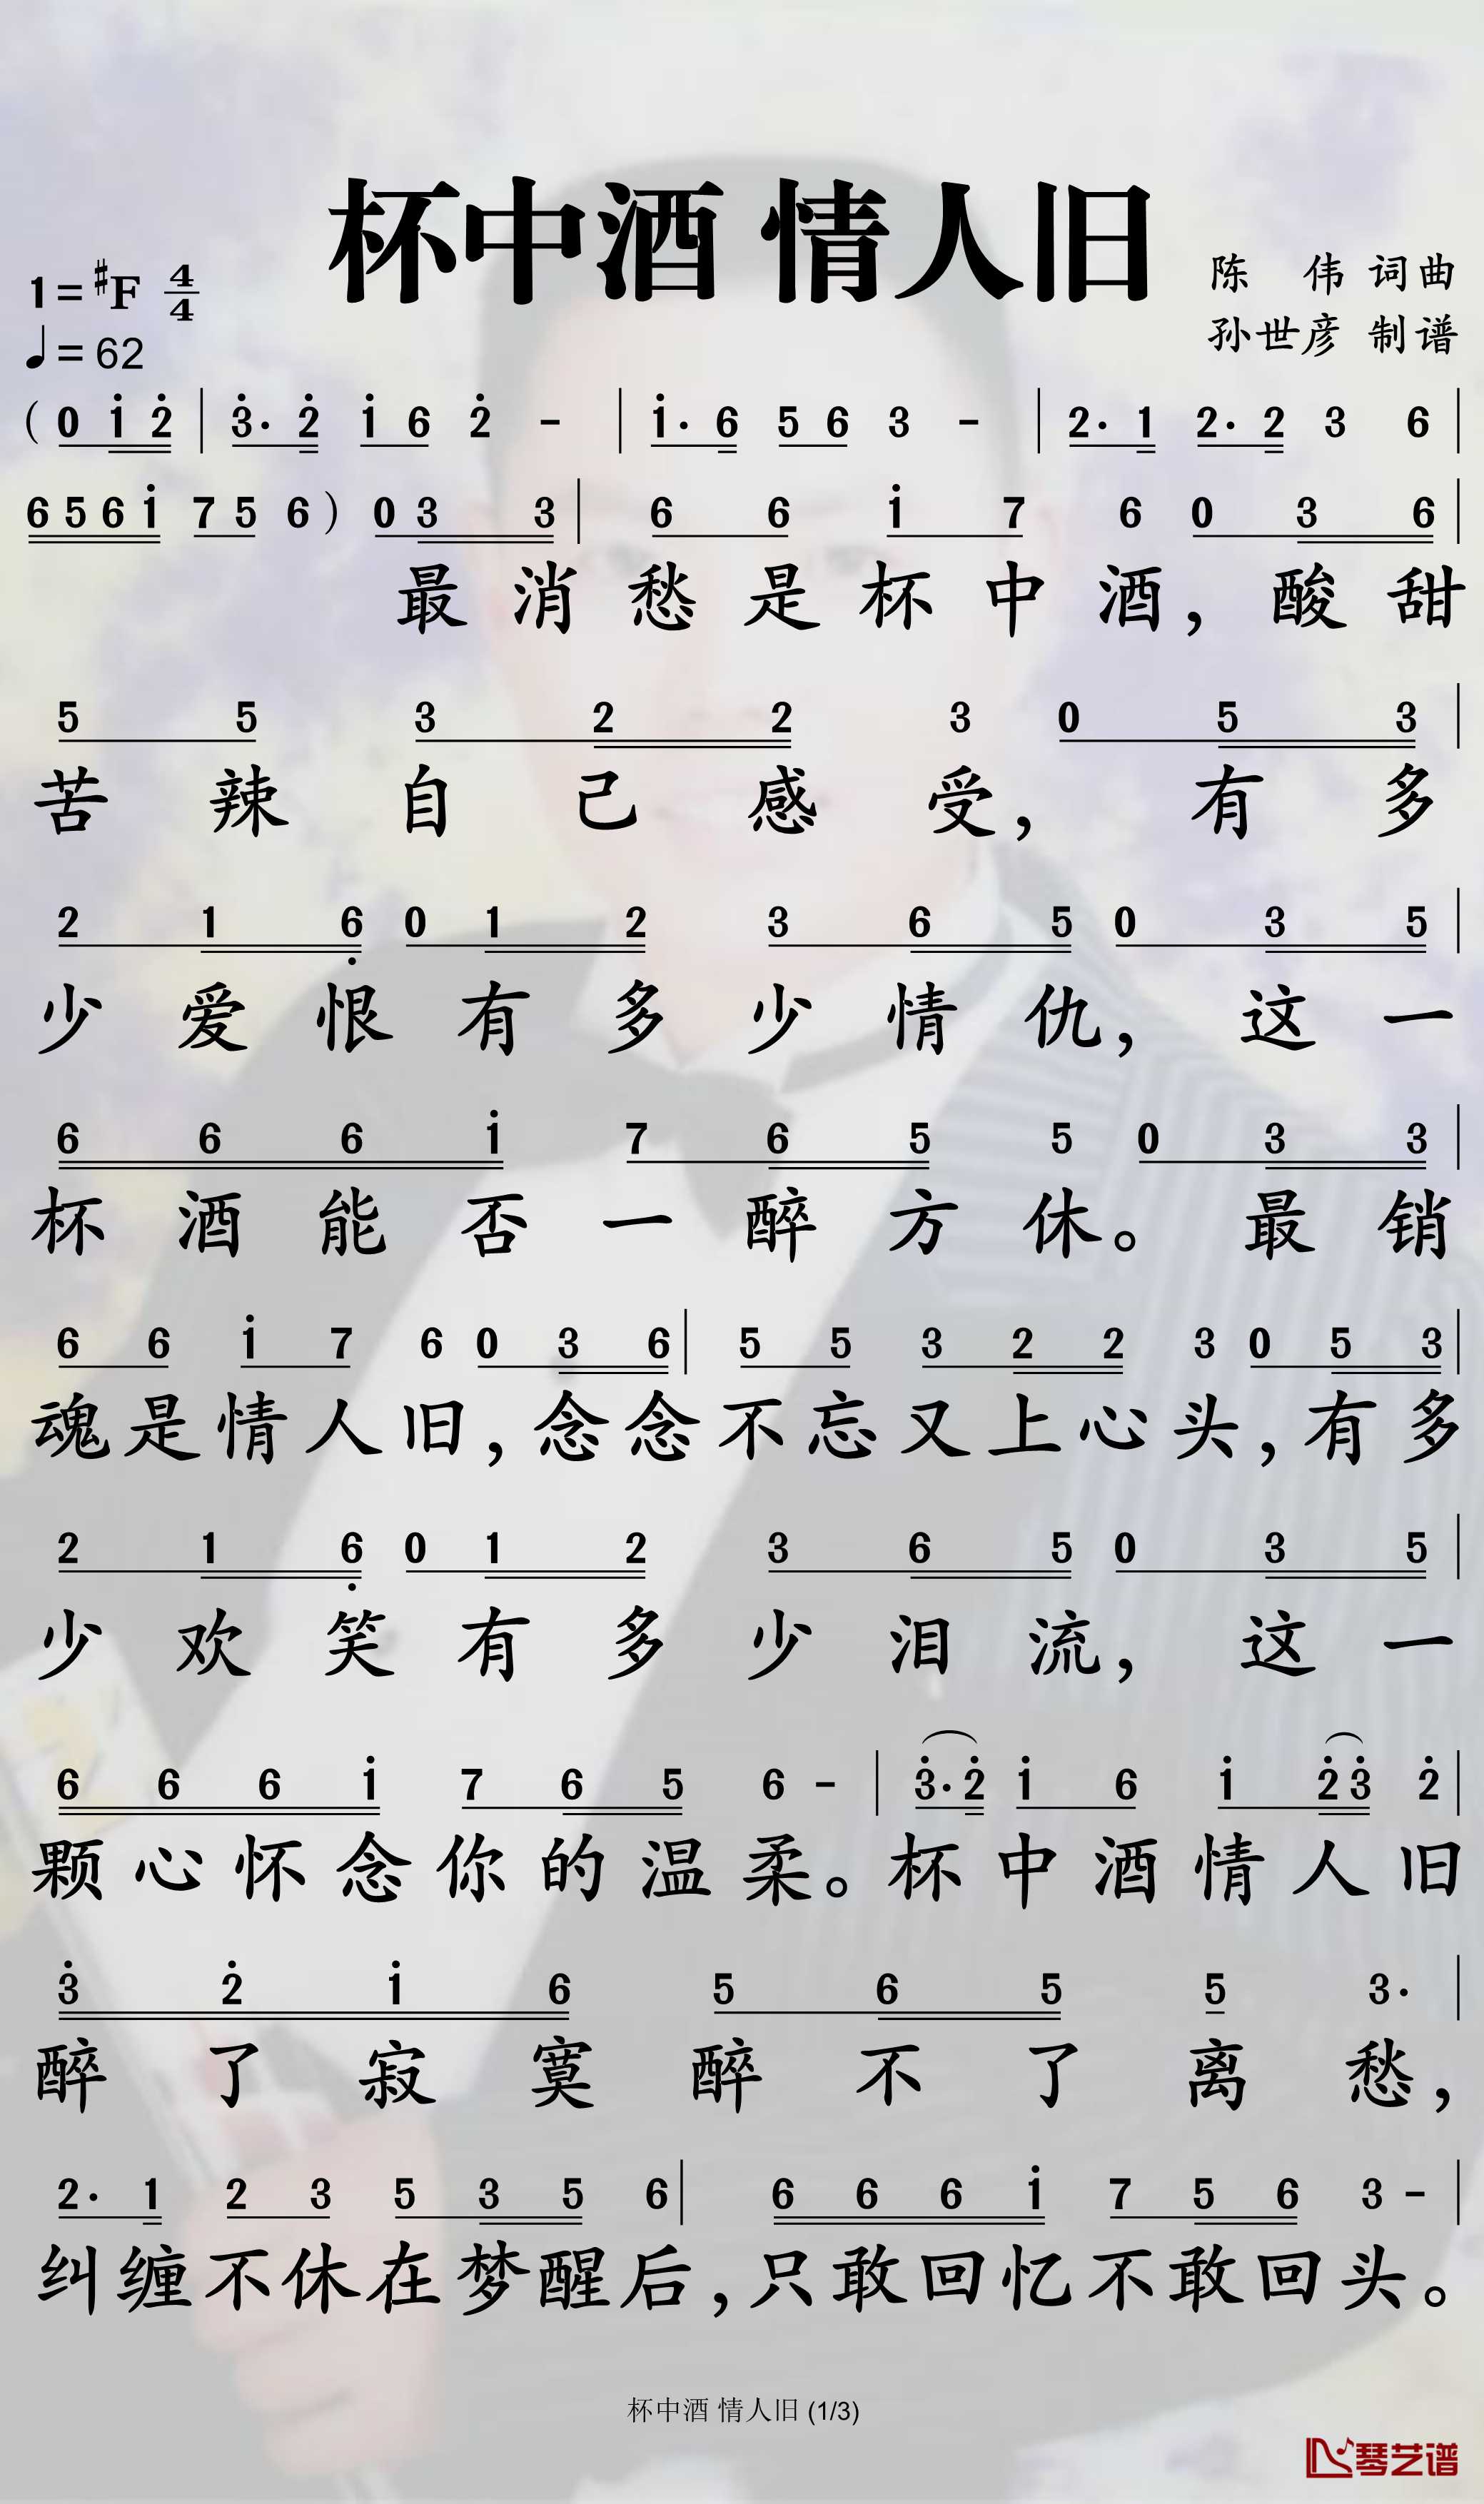 杯中酒 情人旧
1=♯F 4/4
陈 伟 词曲
♩=62
孙世彦 制谱
( 0 1̇ 2̇ | 3̇· 2̇ 1̇ 6 2̇ - | 1̇· 6 5 6 3 - | 2· 1 2· 2 3 6 |
6 5 6 1̇ 7 5 6 ) 0 3 3 | 6 6 1̇ 7 6 0 3 6 |
最 消 愁 是 杯 中 酒, 酸 甜
5 5 3 2 2 3 0 5 3 |
苦 辣 自 己 感 受, 有 多
2 1 6̣ 0 1 2 3 6 5 0 3 5 |
少 爱 恨 有 多 少 情 仇, 这 一
6 6 6 1̇ 7 6 5 5 0 3 3 |
杯 酒 能 否 一 醉 方 休。 最 销
6 6 1̇ 7 6 0 3 6 | 5 5 3 2 2 3 0 5 3 |
魂 是 情 人 旧, 念 念 不 忘 又 上 心 头, 有 多
2 1 6̣ 0 1 2 3 6 5 0 3 5 |
少 欢 笑 有 多 少 泪 流, 这 一
6 6 6 1̇ 7 6 5 6 - | 3̇· 2̇ 1̇ 6 1̇ 2̇ 3̇ 2̇ |
颗 心 怀 念 你 的 温 柔。 杯 中 酒 情 人 旧
3̇ 2̇ 1̇ 6 5 6 5 5 3· |
醉 了 寂 寞 醉 不 了 离 愁,
2· 1 2 3 5 3 5 6 | 6 6 6 1̇ 7 5 6 3 - |
纠 缠 不 休 在 梦 醒 后, 只 敢 回 忆 不 敢 回 头。
杯中酒 情人旧 (1/3)
琴艺谱